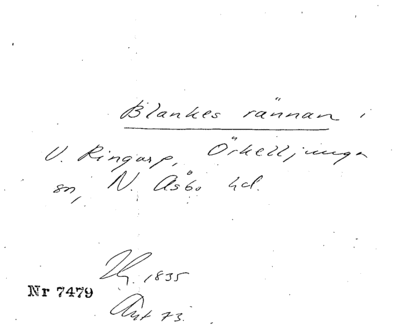 Blankes rännan i
V. Ringarp, Örkelljunga
sn, N. Åsbo hd.
1835
Nr 7479
73.